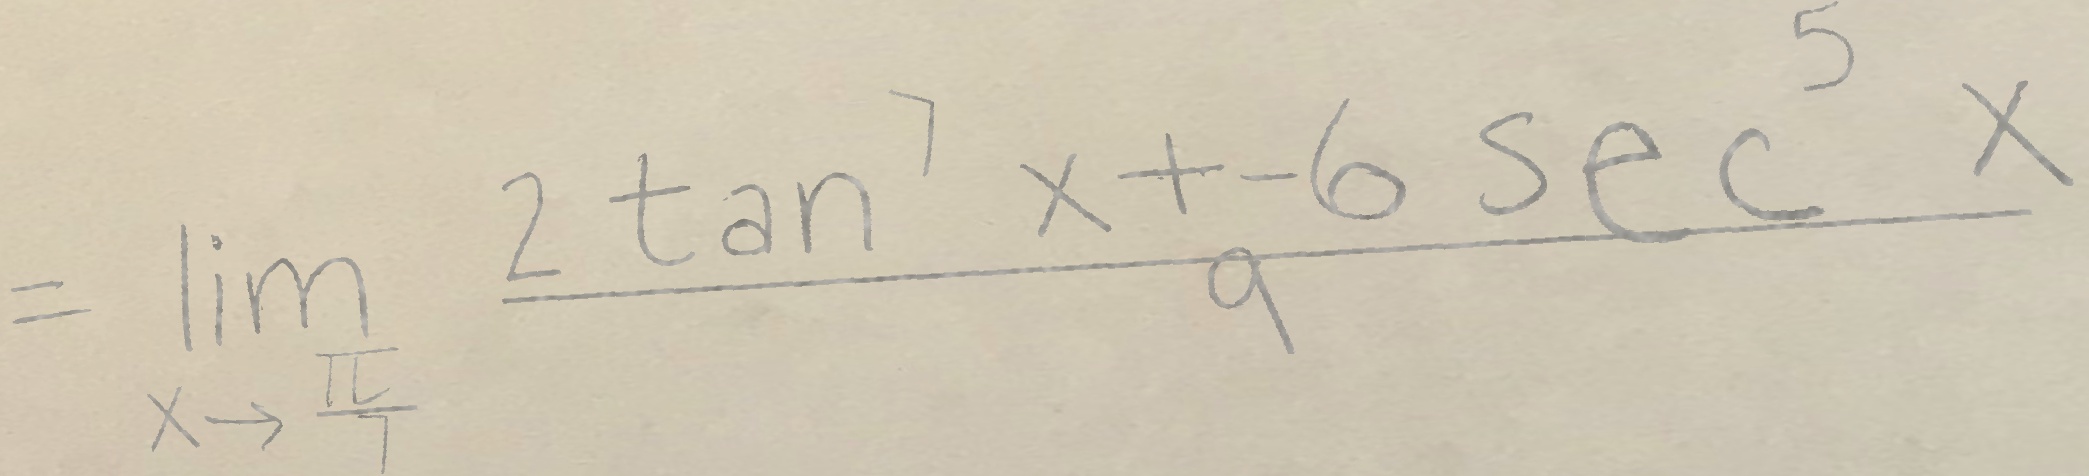 = \lim_{x \to \frac{\pi}{7}} \frac{2 \tan^7 x + -6 \sec^5 x}{9}